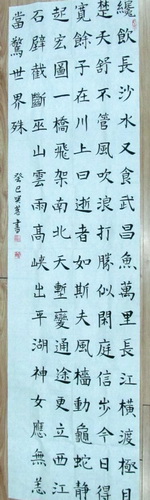 纔飲長沙水又食武昌魚萬里長江橫渡極目
楚天舒不管風吹浪打勝似閑庭信步今日得
寬餘子在川上曰逝者如斯夫風檣動龜蛇靜
起宏圖一橋飛架南北天塹變通途更立西江
石壁截斷巫山雲雨高峽出平湖神女應無恙
當驚世界殊
癸巳書